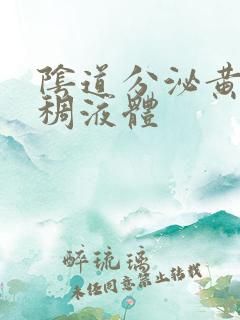 陰道分泌黃
稠液體
醉琉璃
未經同意禁止轉載